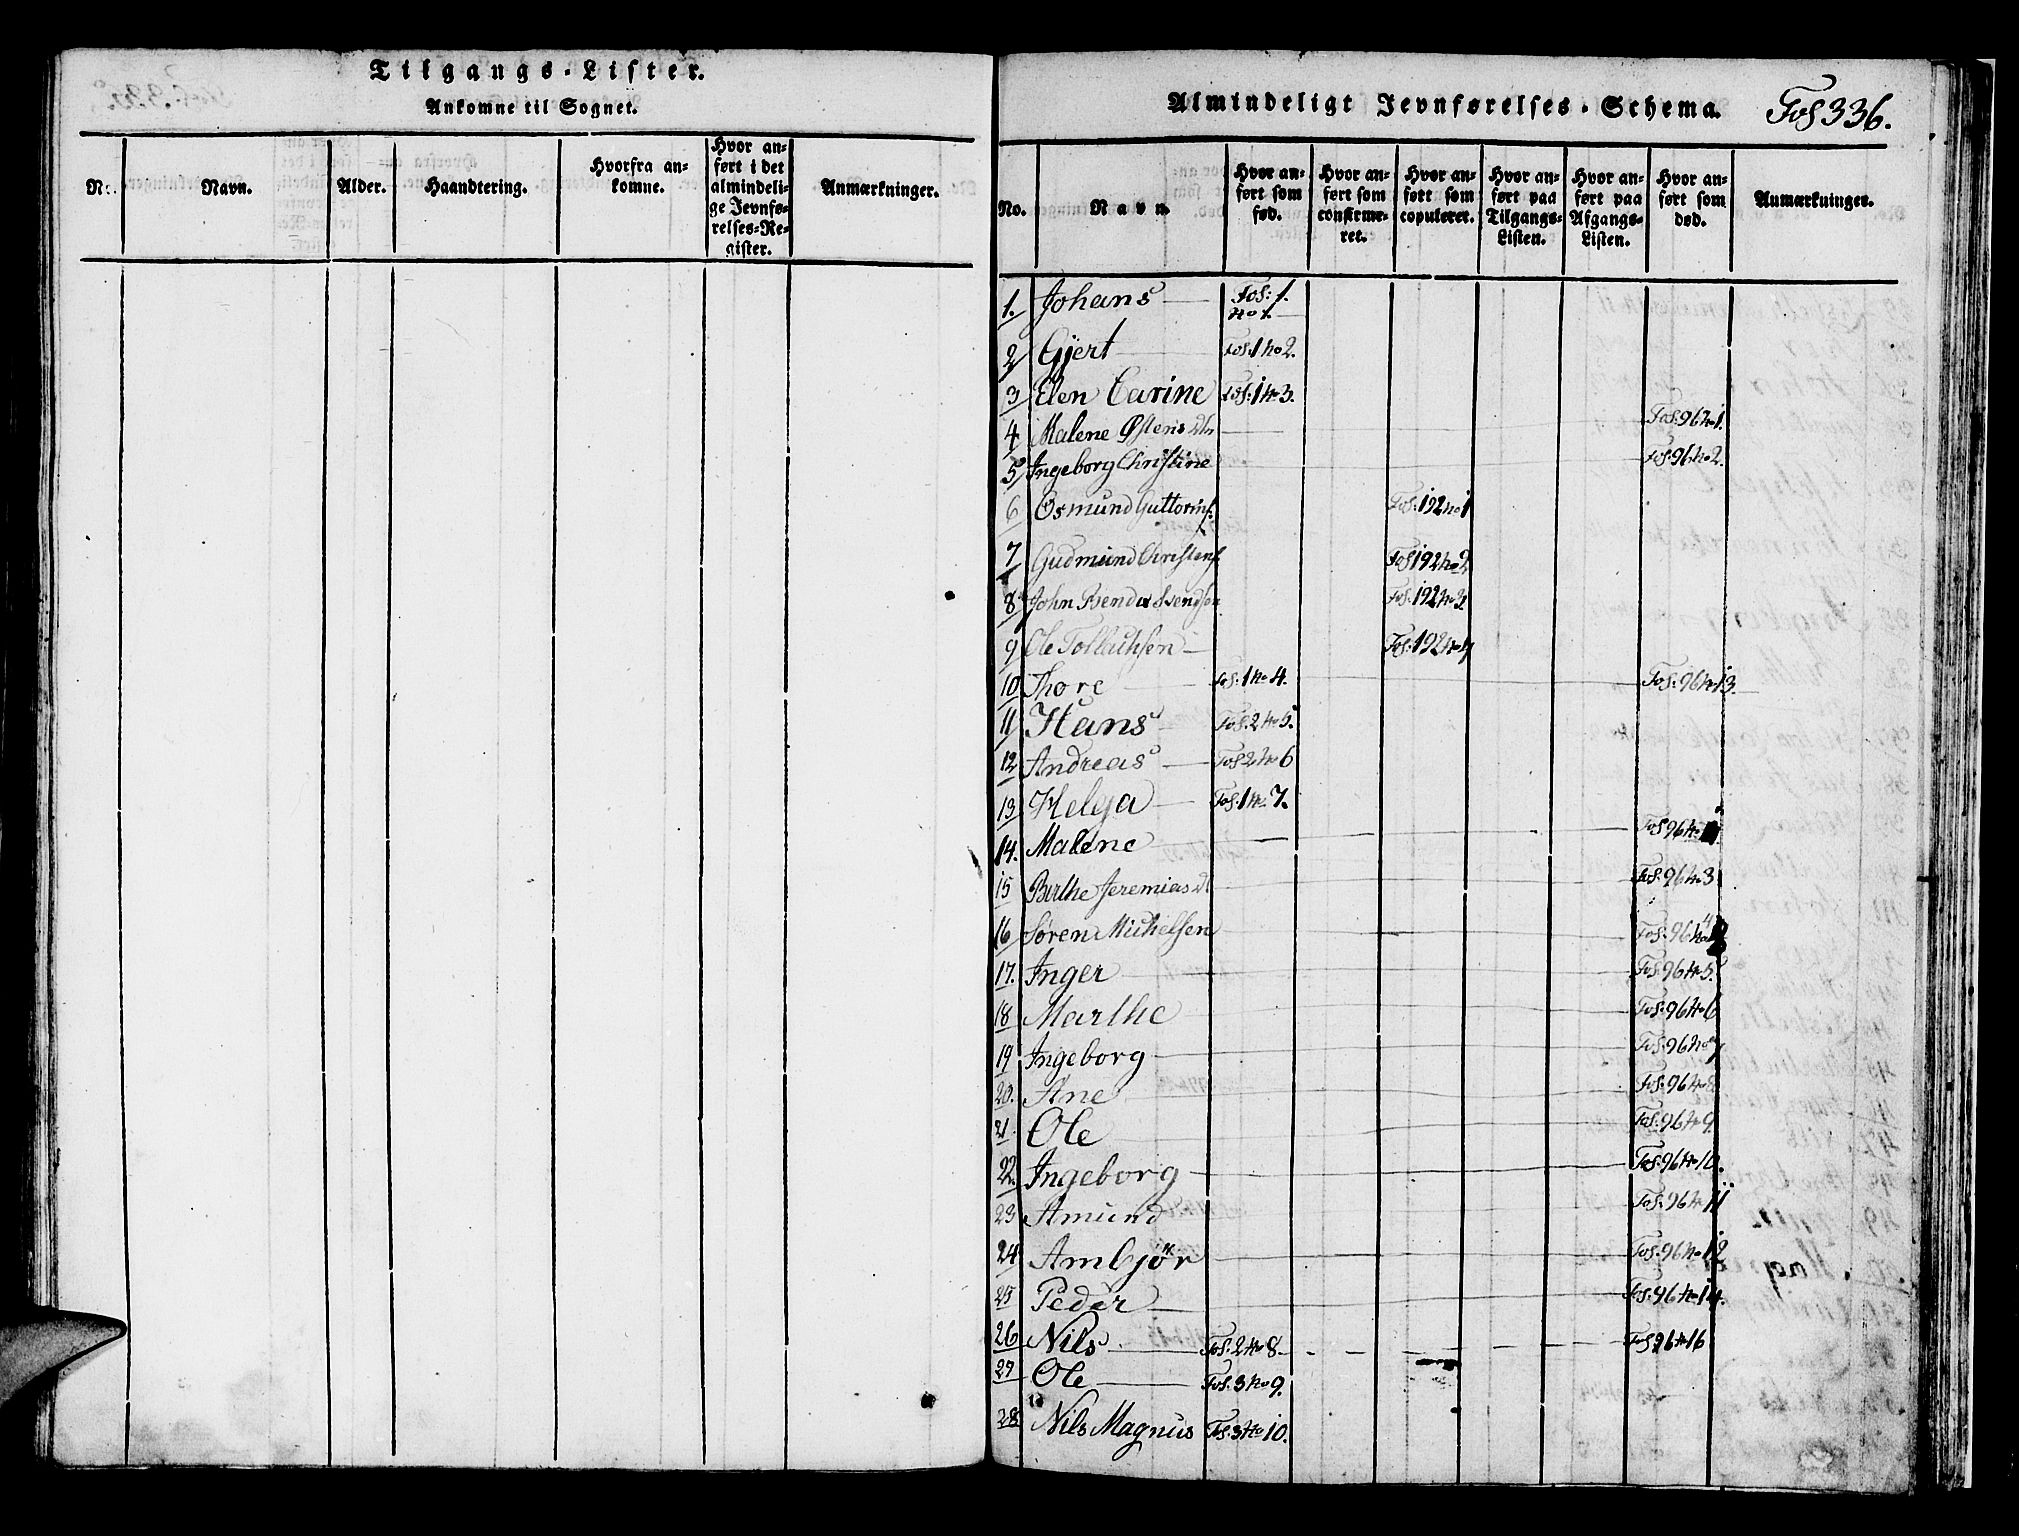 Tilgangs-Lister.
Ankomne til Sognet.
No.
Navn.
Alder.
Haandtering.
Hvorfra an-
komne.
Hvor an-
ført i det
almindeli-
ge Jevnfø-
relses-Re-
gister.
Anmærkninger.
Almindeligt Jevnførelses-Schema. Fol 336.
No.
Navn.
Hvor an-
ført som
fød.
Hvor an-
ført som
confirme-
ret.
Hvor an-
ført som
copuleret.
Hvor an-
ført paa
Tilgangs-
Listen.
Hvor an-
ført paa
Afgangs-
Listen.
Hvor an-
ført som
død.
Anmærkninger.
1. Johans Fol: 1.
No 1.
2 Gjert Fol: 1 No 2.
3 Elen Carine Fol: 1 No 3.
4 Malene Østens dtr Fol: 96 No 1.
5 Ingeborg Christine Fol: 96 No 2.
6 Osmund Guttormf. Fol: 192 No 1
7 Gudmund Christenf. Fol 192 No 2
8 John Svendsen Fol: 192 No 3
9 Ole Tollachsen Fol: 192 No 4
10 Thore Fol: 1 No 4. Fol: 96 No 13.
11 Hans Fol: 2 No 5.
12 Andreas Fol 2 No 6
13 Helga Fol: 1 No 7.
14. Malene Fol 96 No
15 Berthe Jeremias d Fol: 96 No 3
16 Søren Michelsen Fol: 96 No 4
17. Inger Fol: 96 No 5.
18 Marthe Fol: 96 No 6
19 Ingeborg Fol: 96 No 7
20. Ane Fol: 96 No 8
21. Ole Fol: 96 No 9.
22. Ingeborg Fol: 96 No 10.
23 Amund Fol: 96 No 11
24 Ambjør Fol: 96 No 12
25 Peder Fol: 96 No 14.
26 Nils Fol: 2 No 8. Fol 96 No 16
27 Ole Fol: 3 No 9.
28 Nils Magnus Fol: 3 No 10.